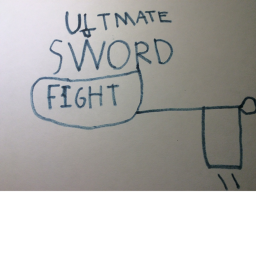 ULTMATE
SWORD
FIGHT